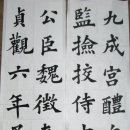 九成宮醴
監撿挍侍
公臣魏徵
貞觀六年